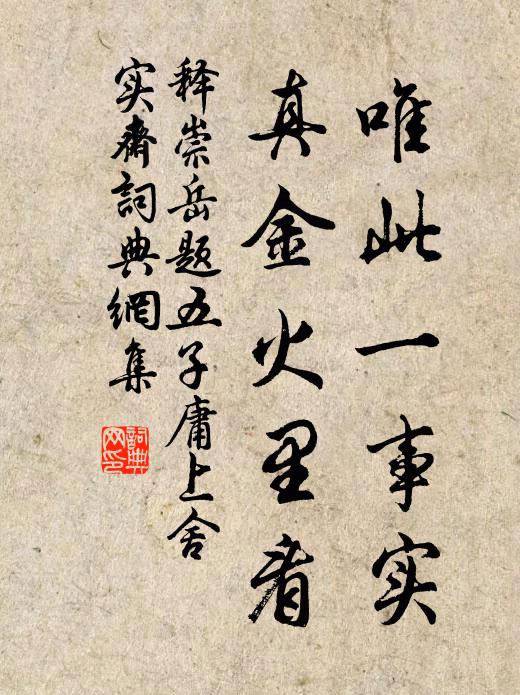 唯此一事实
真金火里看
释崇岳题五子庸上舍
实斋词典网集
詞典网印